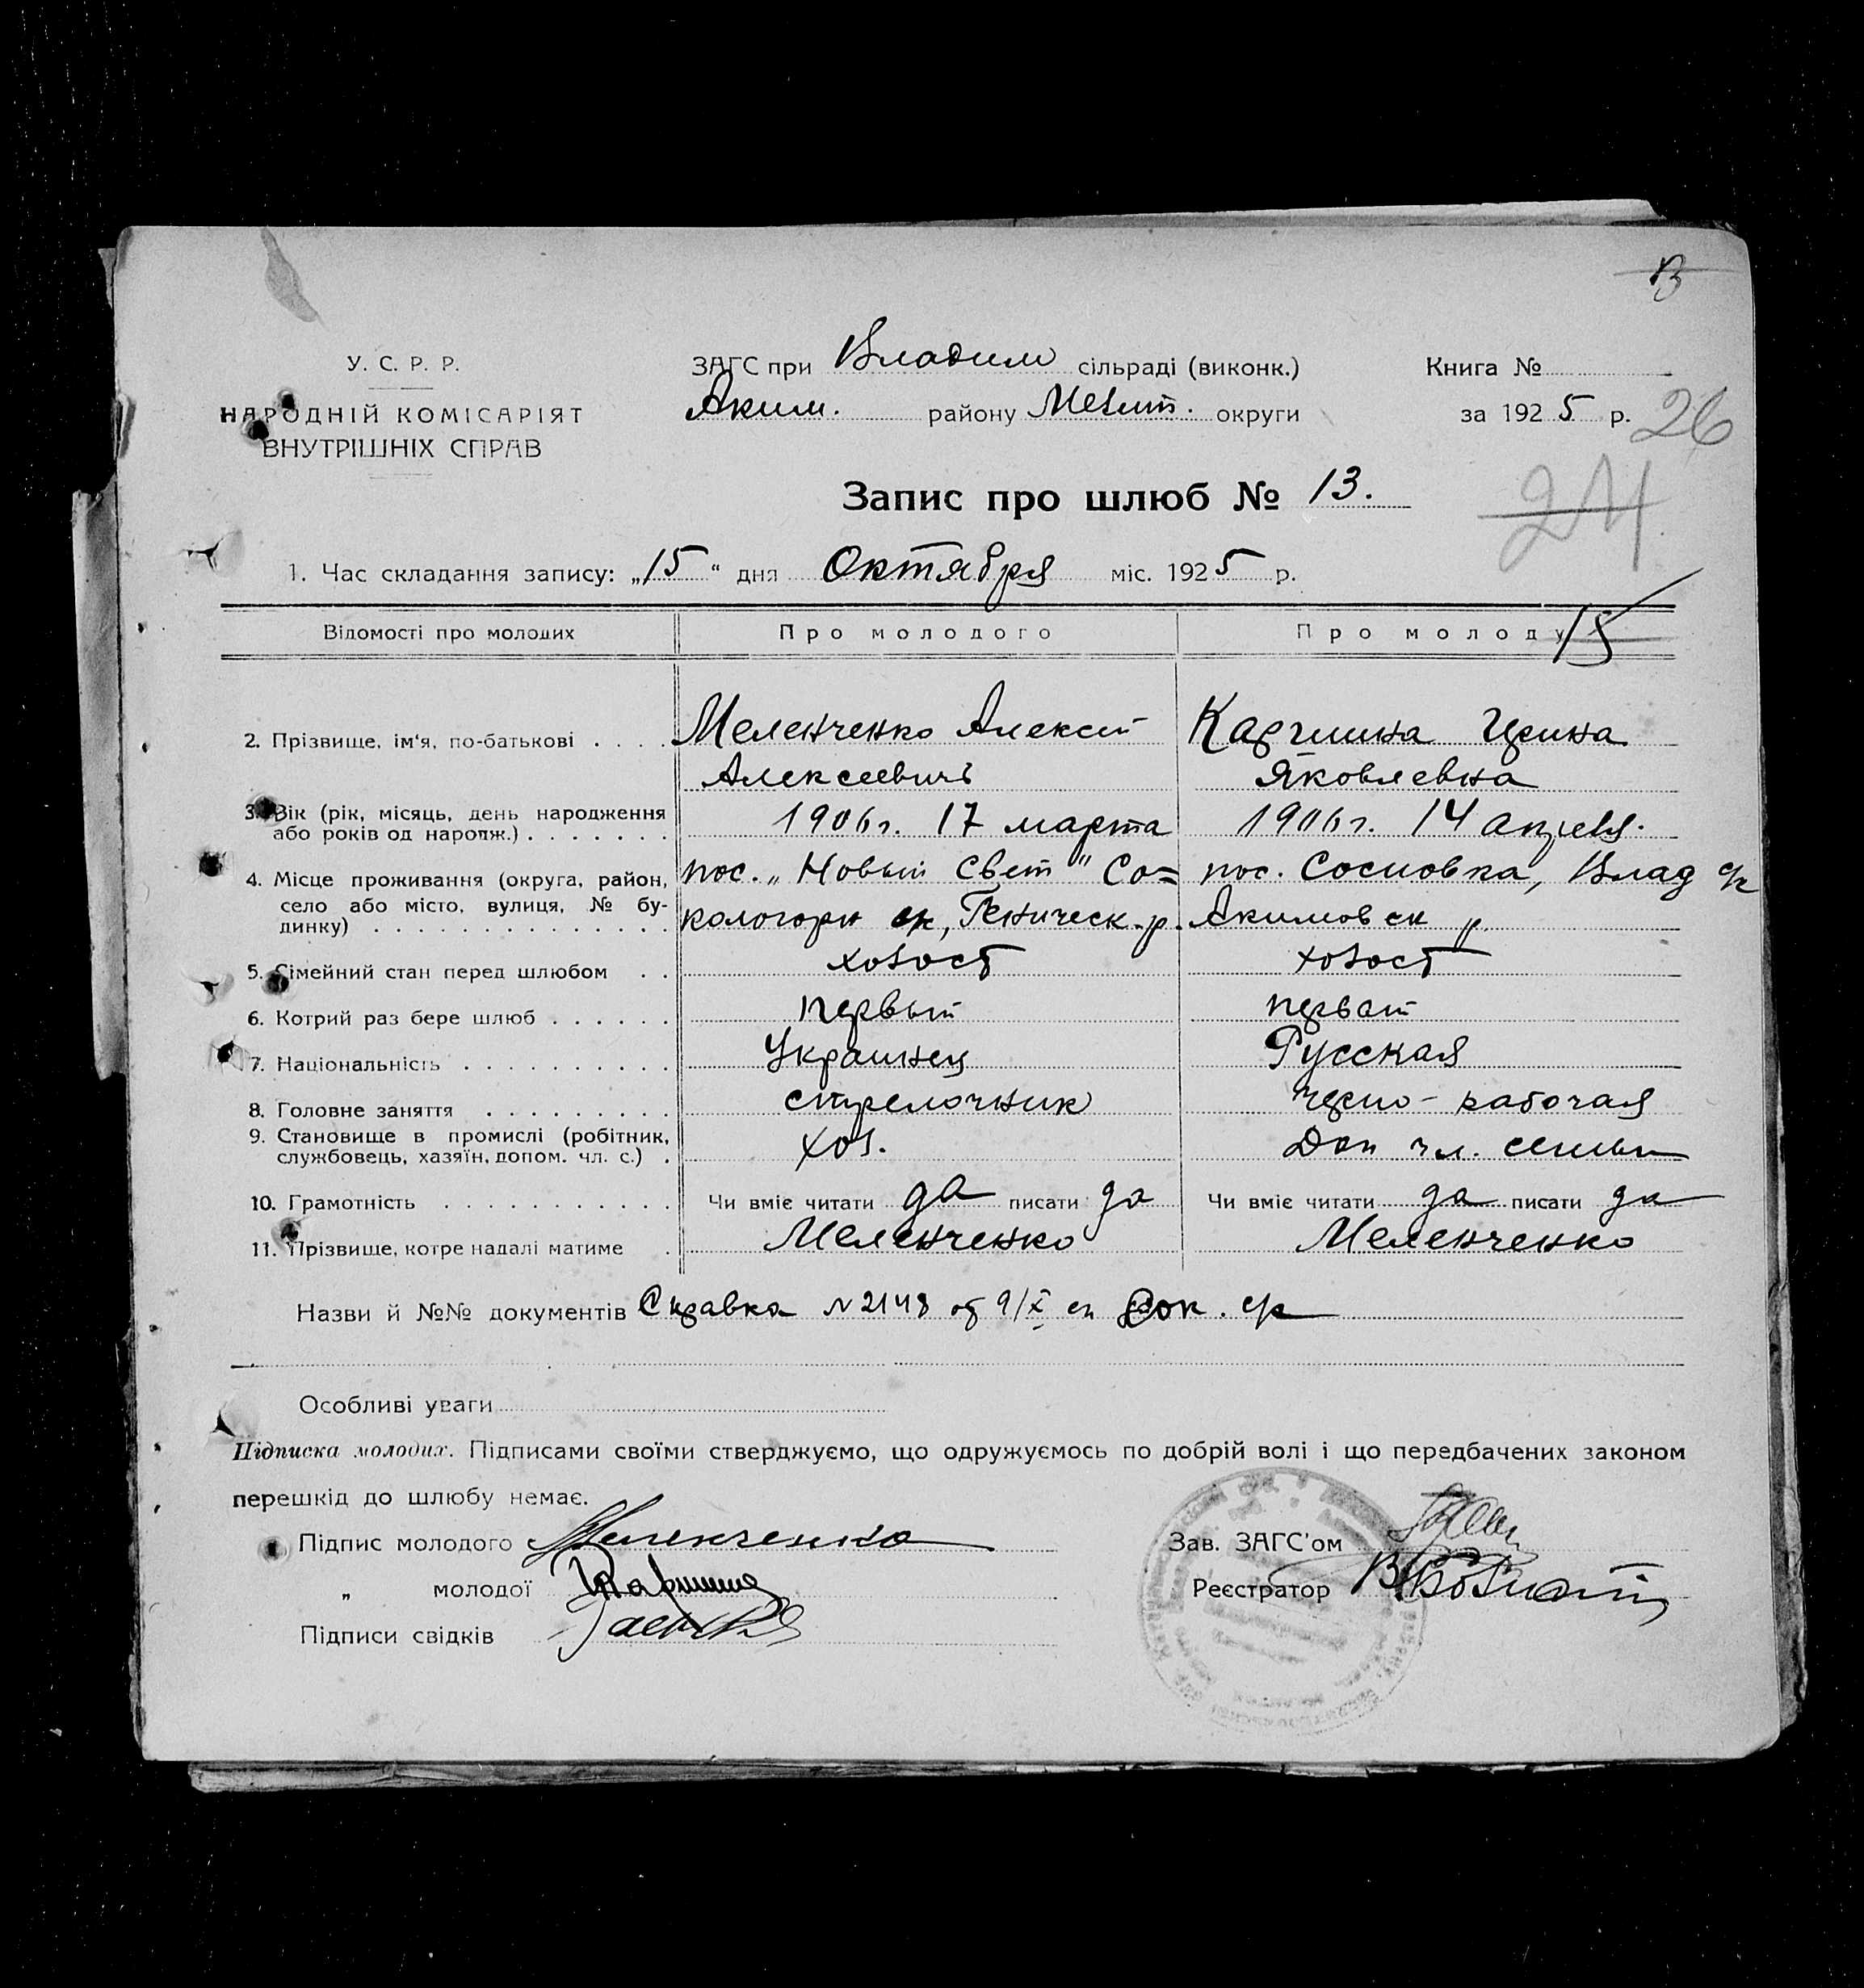 13
У. С. Р. Р.
НАРОДНІЙ КОМІСАРІЯТ
ВНУТРІШНІХ СПРАВ
ЗАГС при Владим сільраді (виконк.)
Аким. району Мелит. округи
Книга №
за 1925 р.
26
24
Запис про шлюб № 13.
1. Час складання запису: „15“ дня Октября міс. 1925 р.
15
Відомості про молодих Про молодого Про молоду
2. Прізвище, ім'я, по-батькові . . . . Меленченко Алексей Каршина Ирина
Алексеевичъ Яковлевна
3. Вік (рік, місяць, день народження
або років од народж.) . . . . . . . 1906 г. 17 марта 1906 г. 14 апреля.
4. Місце проживання (округа, район, пос. „Новый Свет" Со= пос. Сосновка, Влад с/с
село або місто, вулиця, № бу-
динку) . . . . . . . . . . . . . . кологорн с/с, Геническ. р. Акимовск „
5. Сімейний стан перед шлюбом . . холост холост
6. Котрий раз бере шлюб . . . . . . первый первый
7. Національність . . . . . . . . . . Украинец Русская
8. Головне заняття . . . . . . . . . стрелочник черно-рабочая
9. Становище в промислі (робітник,
службовець, хазяїн, допом. чл. с.) . хоз. Доп чл. семьи
10. Грамотність . . . . . . . . . . . Чи вміє читати да писати да Чи вміє читати да писати да
11. Прізвище, котре надалі матиме . Меленченко Меленченко
Назви й №№ документів Справка № 2148 от 9/X Сок. с/с
Особливі уваги
Підписка молодих. Підписами своїми стверджуємо, що одружуємось по добрій волі і що передбачених законом
перешкід до шлюбу немає.
Підпис молодого Меленченко
„ молодої Каршина
Підписи свідків
Зав. ЗАГС'ом
Реєстратор